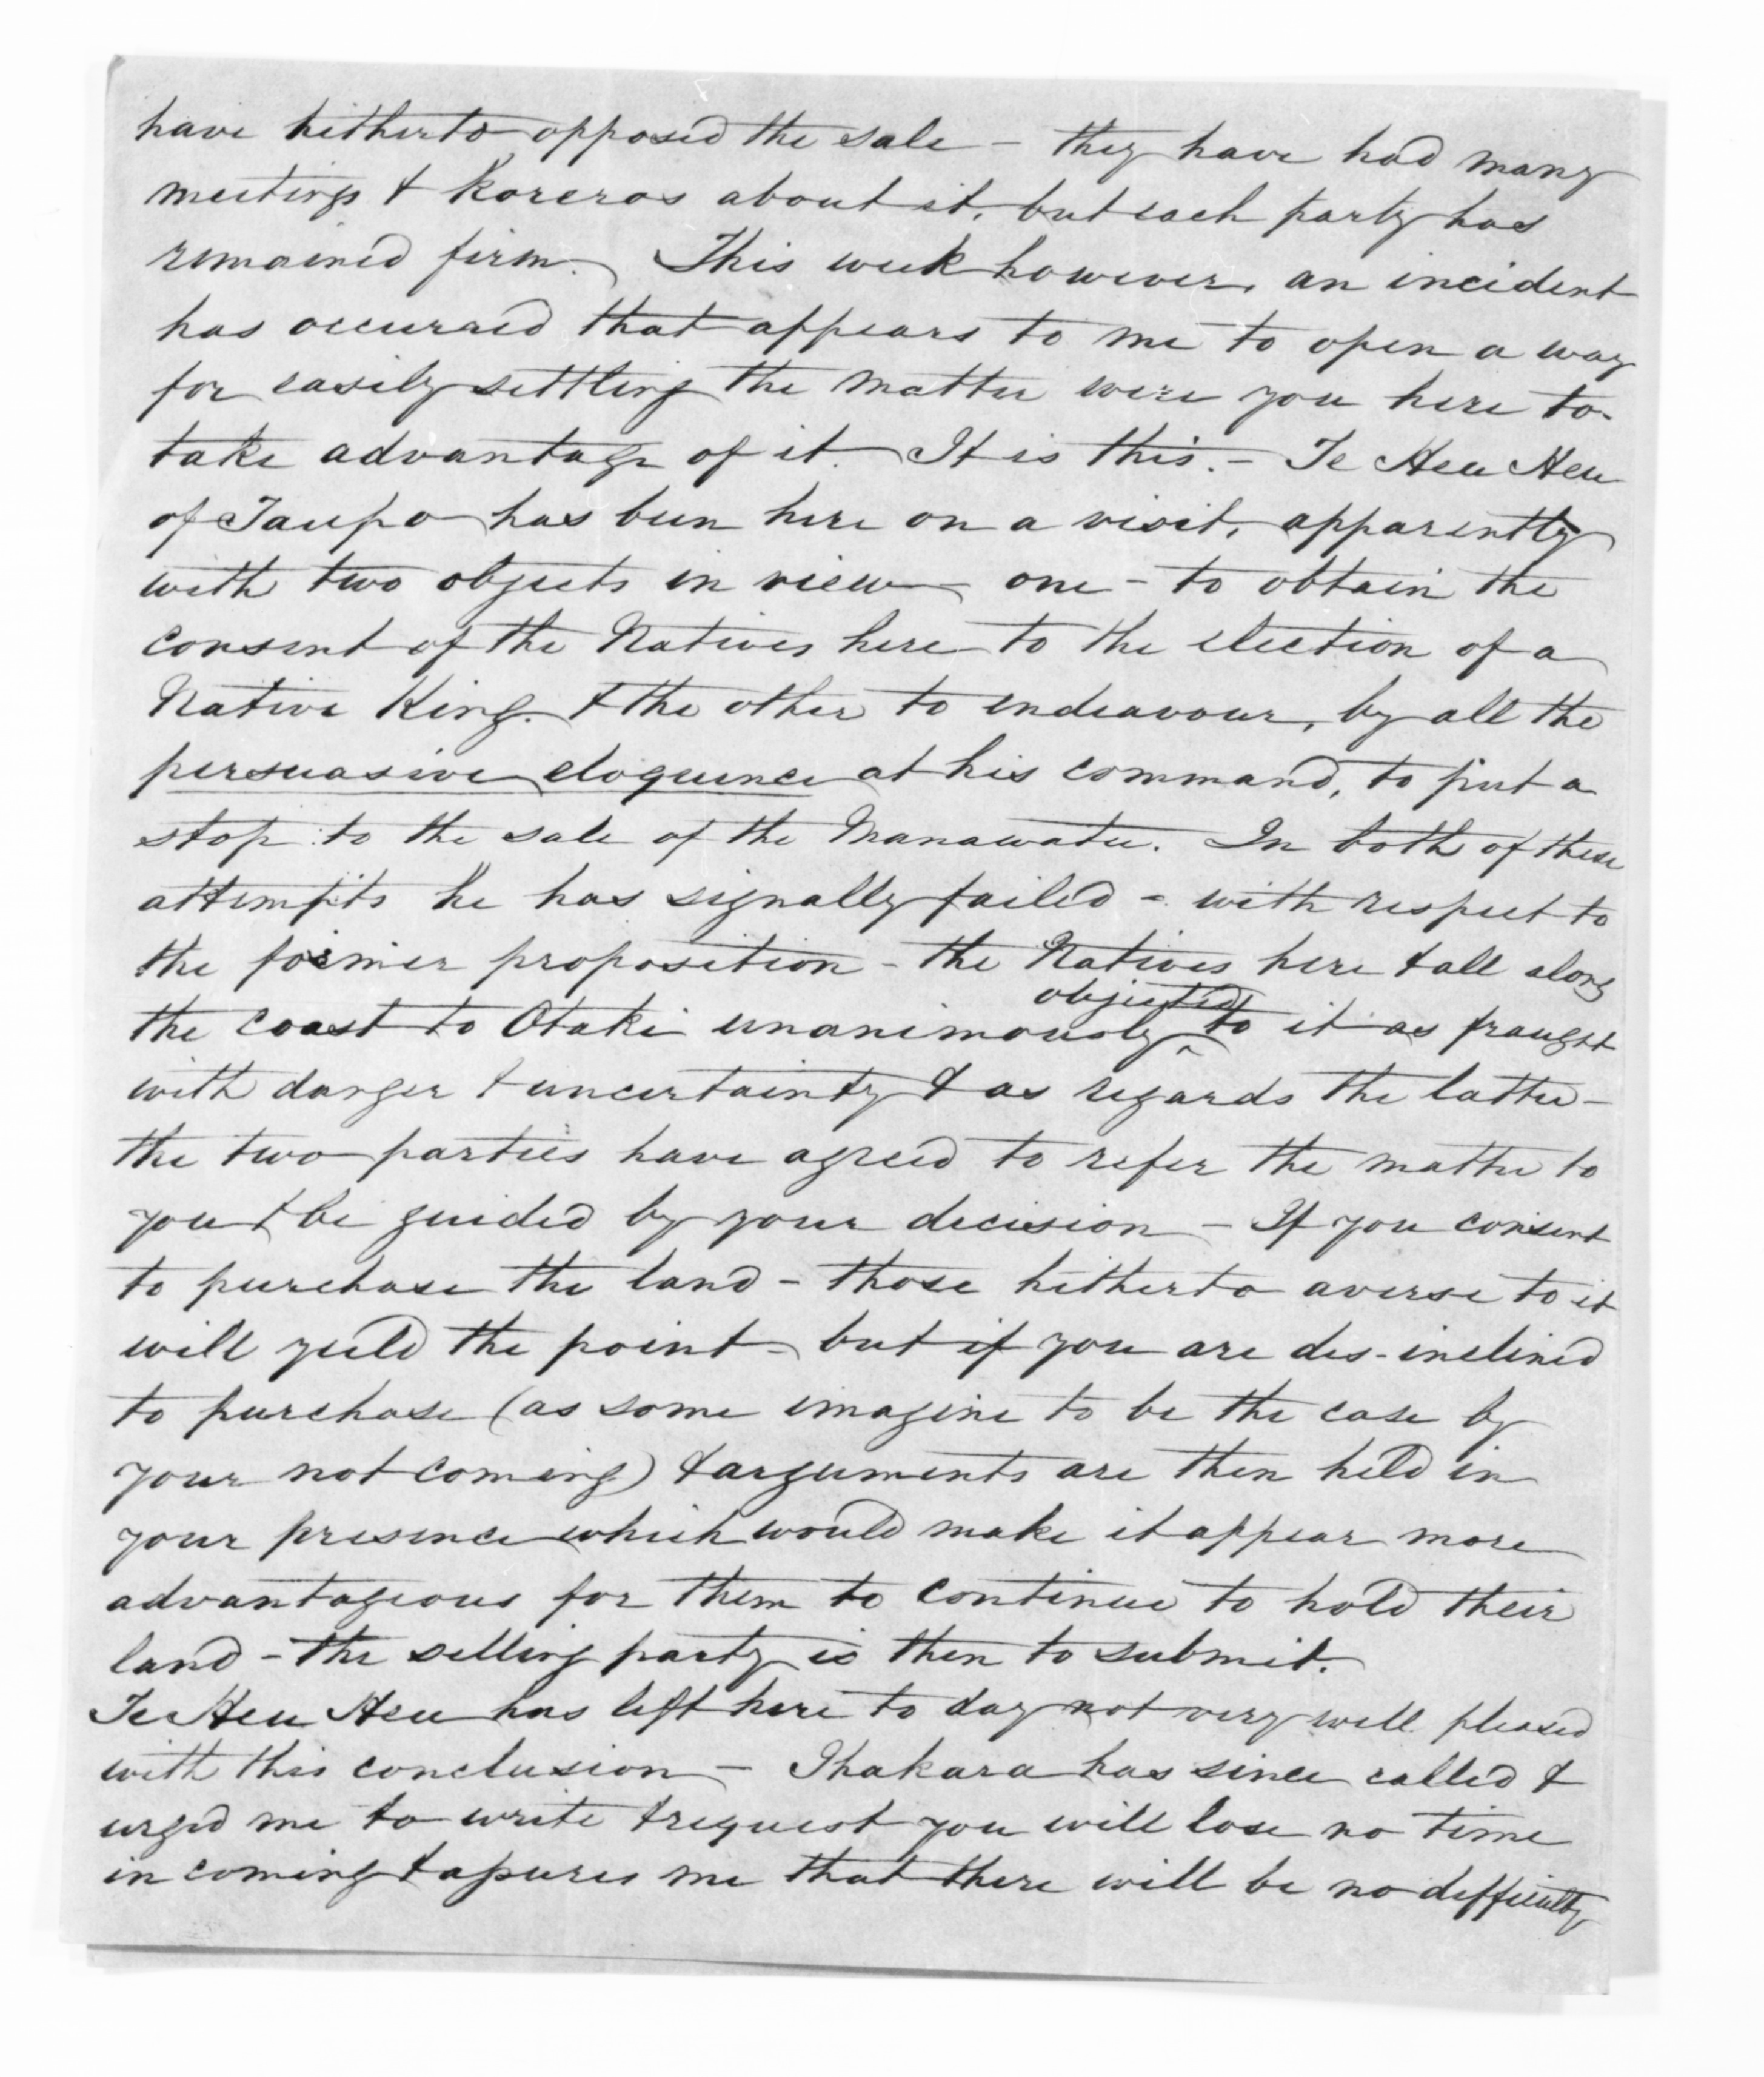 have hitherto opposed the sale – they have had many
meetings & Koreros about it, but each party has
remained firm. This week however, an incident
has occurred that appears to me to open a way
for easily settling the matter were you here to
take advantage of it. It is this. – Te Heu Heu
of Taupo has been here on a visit, apparently
with two objects in view – one – to obtain the
consent of the Natives here to the election of a
Native King. & the other to endeavour, by all the
persuasive eloquence at his command, to put a
stop to the sale of the Manawatu. In both of these
attempts he has signally failed – with respect to
the former proposition – the Natives here & all along
the coast to Otaki unanimously objected to it as fraught
with danger & uncertainty & as regards the latter –
the two parties have agreed to refer the matter to
you & be guided by your decision – If you consent
to purchase the land – those hitherto averse to it
will yield the point – but if you are dis-inclined
to purchase (as some imagine to be the case by
your not coming) & arguments are then held in
your presence which would make it appear more
advantageous for them to continue to hold their
land – the selling party is then to submit.
Te Heu Heu has left here to day not very well pleased
with this conclusion – Ihakara has since called &
urged me to write & request you will lose no time
in coming & assures me that there will be no difficulty